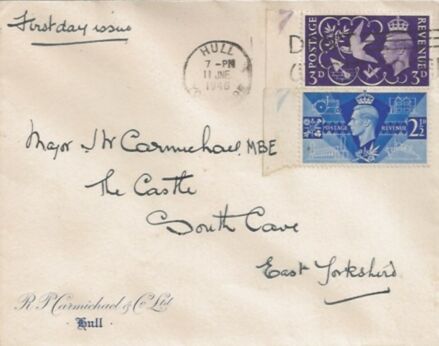 First day issue
HULL
7 - PM
11 JNE
1946
POSTAGE REVENUE
3D 3D
POSTAGE REVENUE
2½D
Major J W Carmichael, MBE
The Castle
South Cave
East Yorkshire
R. P. Carmichael & Co Ltd
Hull